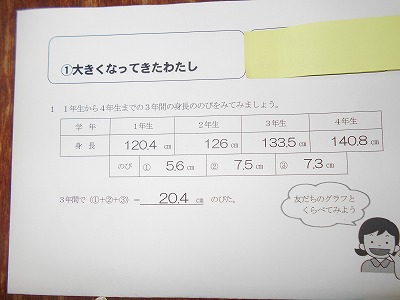 ①大きくなってきたわたし
1 1年生から4年生までの3年間の身長ののびをみてみましょう。
学年 1年生 2年生 3年生 4年生
身長 120.4 cm 126 cm 133.5 cm 140.8 cm
のび ① 5.6 cm ② 7.5 cm ③ 7.3 cm
3年間で(①+②+③)= 20.4 cm のびた。
友だちのグラフと
くらべてみよう